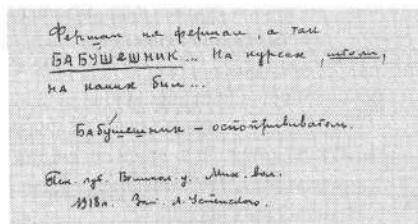 Фершал не фершал, а так
БАБУ́ШЕШНИК... На курсах, што ли,
на каких был...
Бабу́шешник – оспопрививатель.
Пск. губ. Великол. у. Мих. вол.
1918 г. Зап. Л. Успенского.